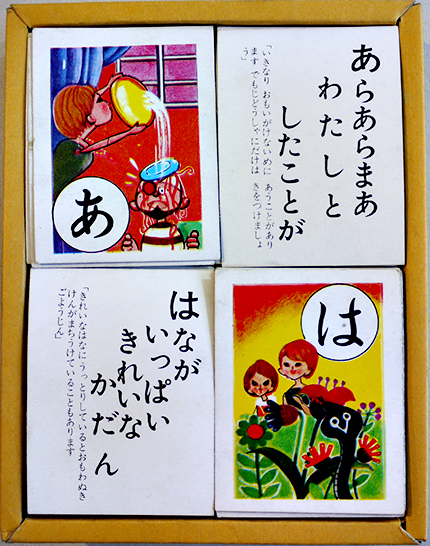 あ
あらあらまあ
わたしと
したことが
「いきなり おもいがけないめに あうことがあり
ます でもじどうしゃにだけは きをつけましょ
う」
はなが
いっぱい
きれいな
かだん
「きれいなはなにうっとりしているとおもわぬき
けんがまちうけていることもあります
ごようじん」
は